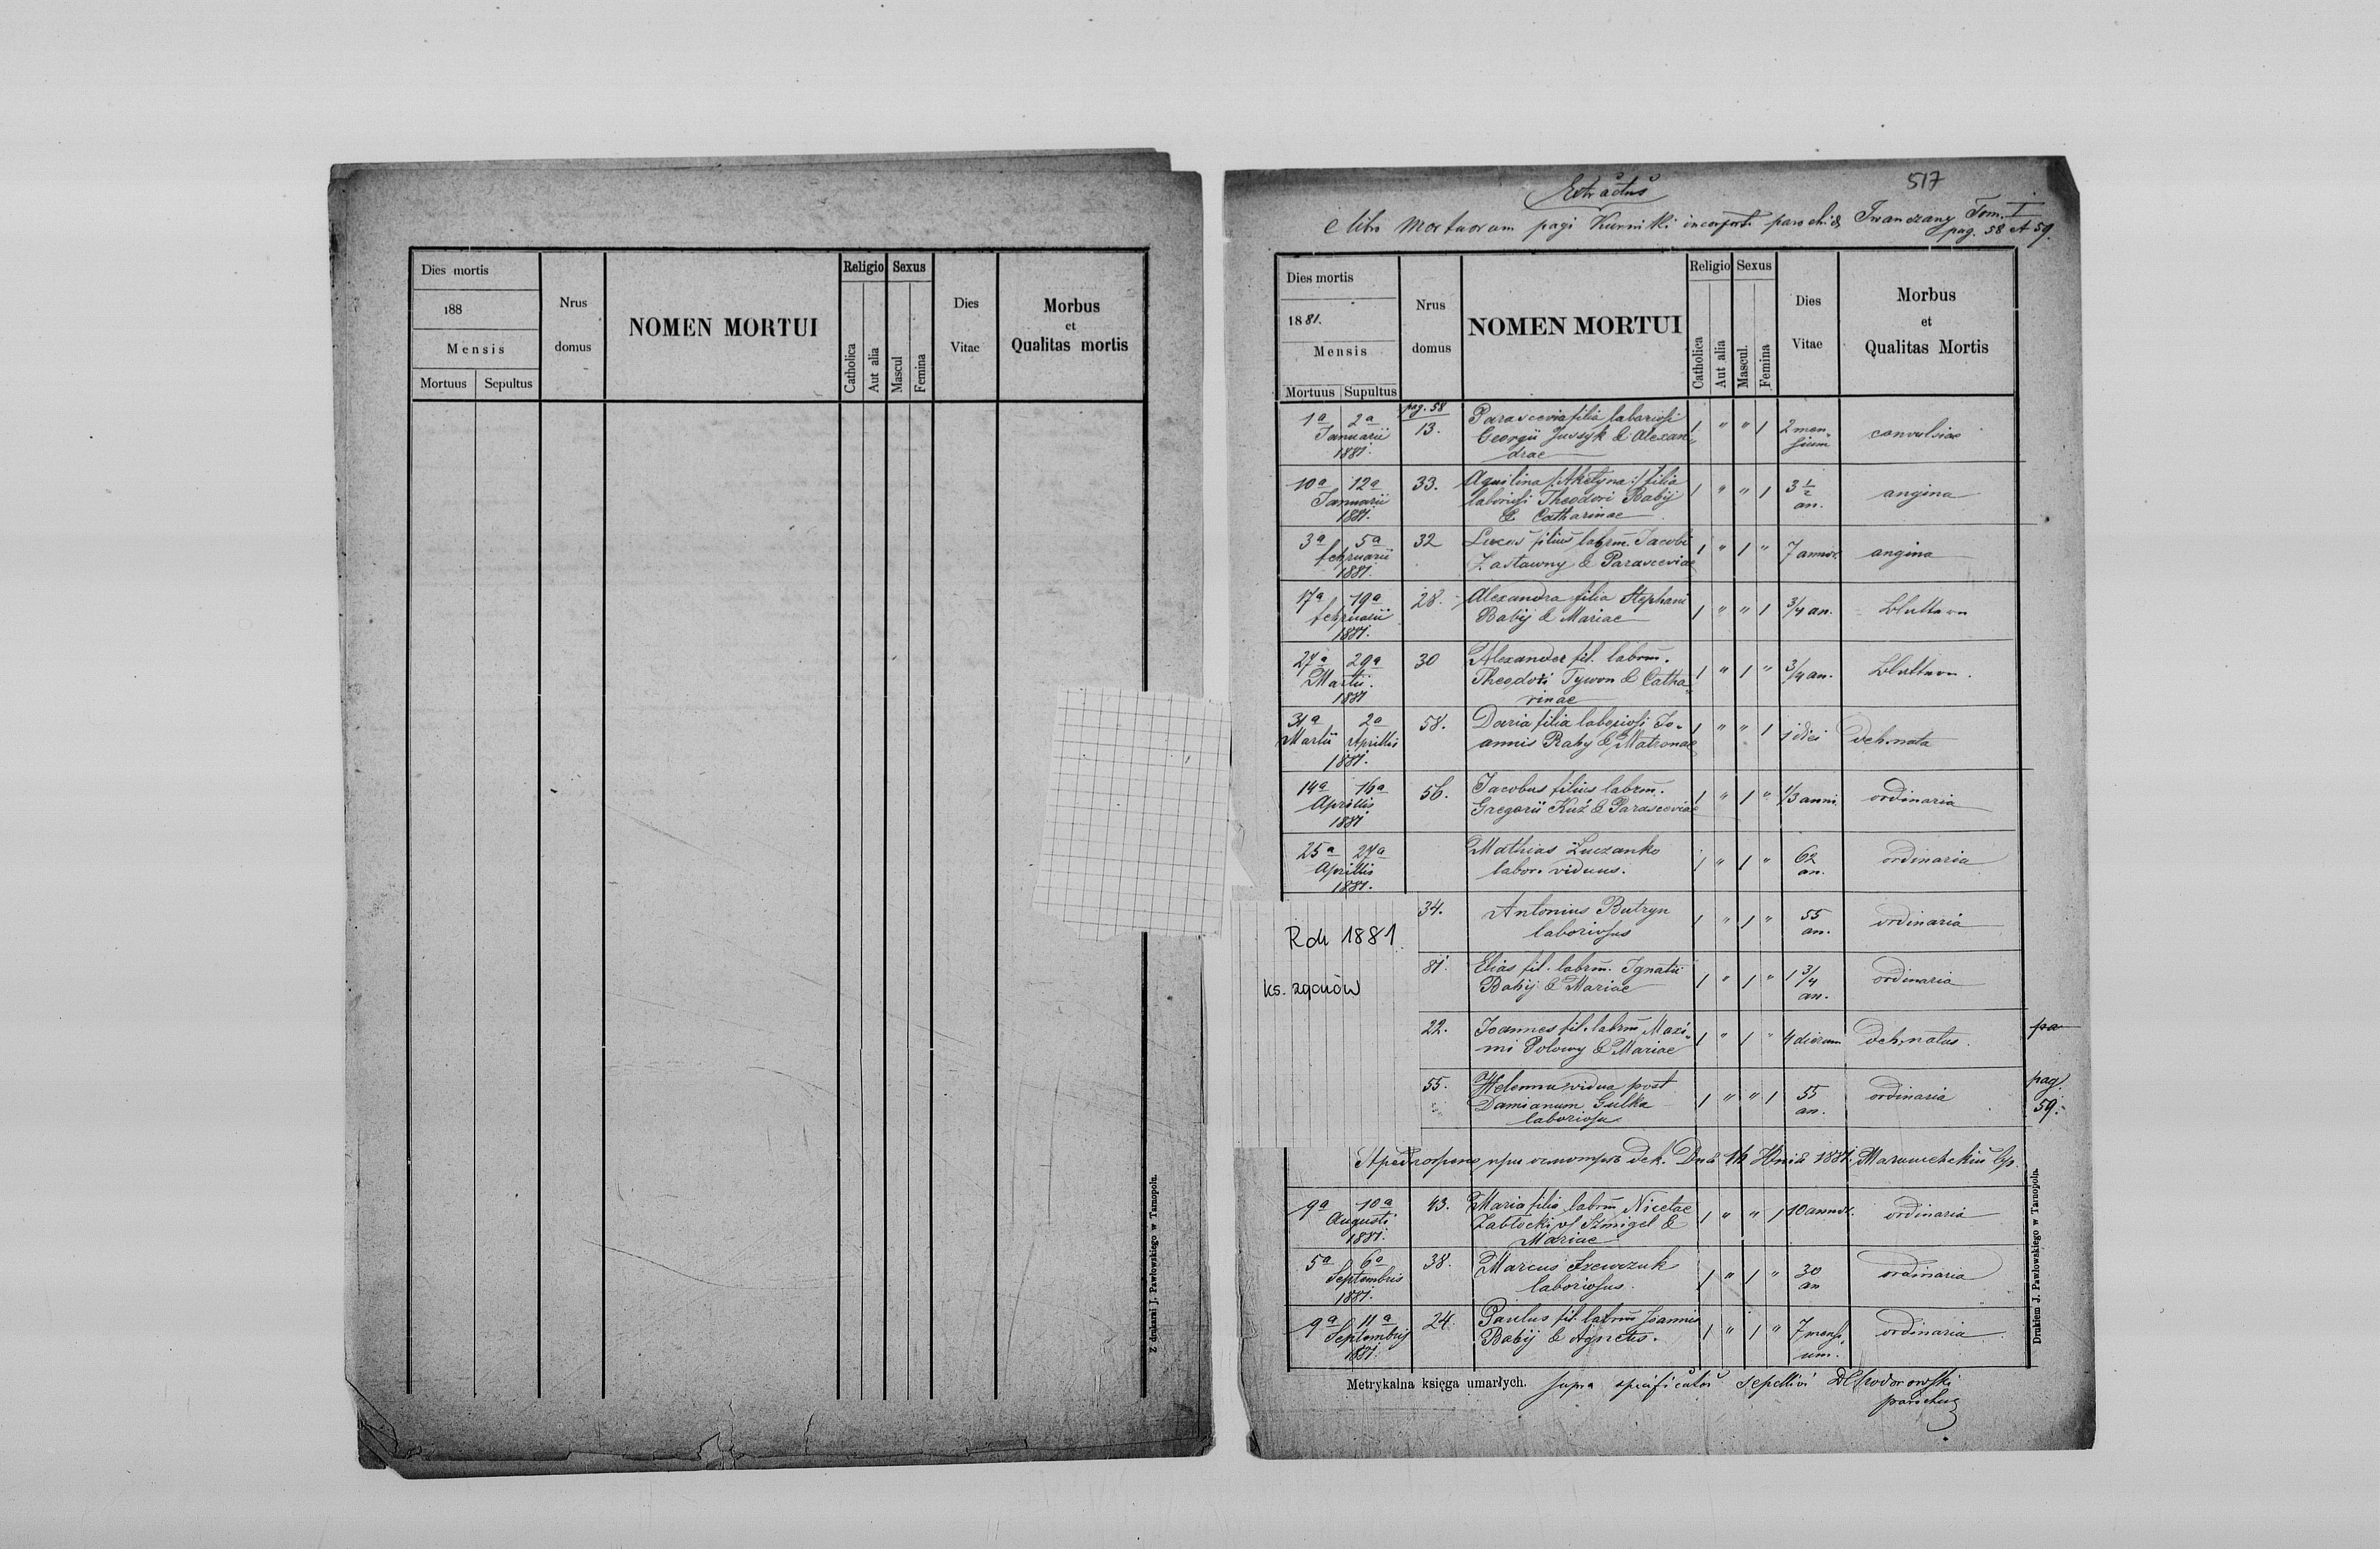 Dies mortis
188
Mensis
Mortuus Sepultus
Nrus
domus
NOMEN MORTUI
Religio
Catholica
Aut alia
Sexus
Mascul
Femina
Dies
Vitae
Morbus
et
Qualitas mortis
Z drukarni J. Pawłowskiego w Tarnopolu.
517
Extractus
e libro Mortuorum pagi Kurniki incorport. parochiae Iwanczany Tom. I
pag. 58 et 59.
Dies mortis
1881.
Mensis
Mortuus Supultus
Nrus
domus
NOMEN MORTUI
Religio
Catholica
Aut alia
Sexus
Mascul.
Femina
Dies
Vitae
Morbus
et
Qualitas Mortis
pag. 58
1a 2a 13. Parascevia filia laboriosi 1 " " 1 2 men
Januarii Georgii & Alexan sium
1881. drae
10a 12a 33. Aquilina /:Akelyna:/ filia 1 " " 1 3 1/2 angina
Januarii laboriosi Theodori Babij an.
1881. & Catharinae
3a 5a 32 Lucas filius labrm. Jacobi 1 " 1 " 7 annor. angina
februarii Zastawny & Parasceviae
1881.
17a 19a 28. Alexandra filia Stephani 1 " " 1 3/4 an.
februarii Babij & Mariae
1881.
27a 29a 30 Alexander fil. labrm. 1 " 1 " 3/4 an.
Martii. Theodori Tywon & Catha
1881 rinae
31a 2a 58. Daria filia laboriosi Jo- 1 " " 1 1 diei deb. nata
Martii Aprillis annis Baby & Matronae
1881.
14a 16a 56. Jacobus filius labrm. 1 " 1 " 1/3 anni ordinaria
Aprillis Gregorii Kuź & Parasceviae
1881
25a 27a Mathias Łuczanko 1 " 1 " 62 ordinaria
Aprillis labor. viduus. an.
1881.
Rok 1881
ks. zgonów
34. Antonius Butryn 1 " 1 " 55 ordinaria
laboriosus an.
81. Elias fil. labrm. Ignatii 1 " 1 " 1 3/4 ordinaria
Babij & Mariae an.
22. Joannes fil. labrm Maxi- 1 " 1 " 4 dierum deb. natus. pa
mi Polowy & Mariae
55. Helenna vidua post 1 " " 1 55 ordinaria pag.
Damianum Gulka an. 59.
laboriosa
1881.
9a 10a 43. Maria filia labrm Nicetae 1 " " 1 10 annor. ordinaria
Augusti Zabłocki vl Szmigel &
1881. Mariae
5a 6a 38. Marcus Szewczuk 1 " 1 " 30 ordinaria
Septembris laboriosus. an
1881.
9a 11a 24. Paulus fil. labrm Joannis 1 " 1 " 7 mensi ordinaria
Septembris Babij & Agnetis. um.
1881.
Metrykalna księga umarłych. supra specificatos sepellivi
parochus
Drukiem J. Pawłowskiego w Tarnopolu.